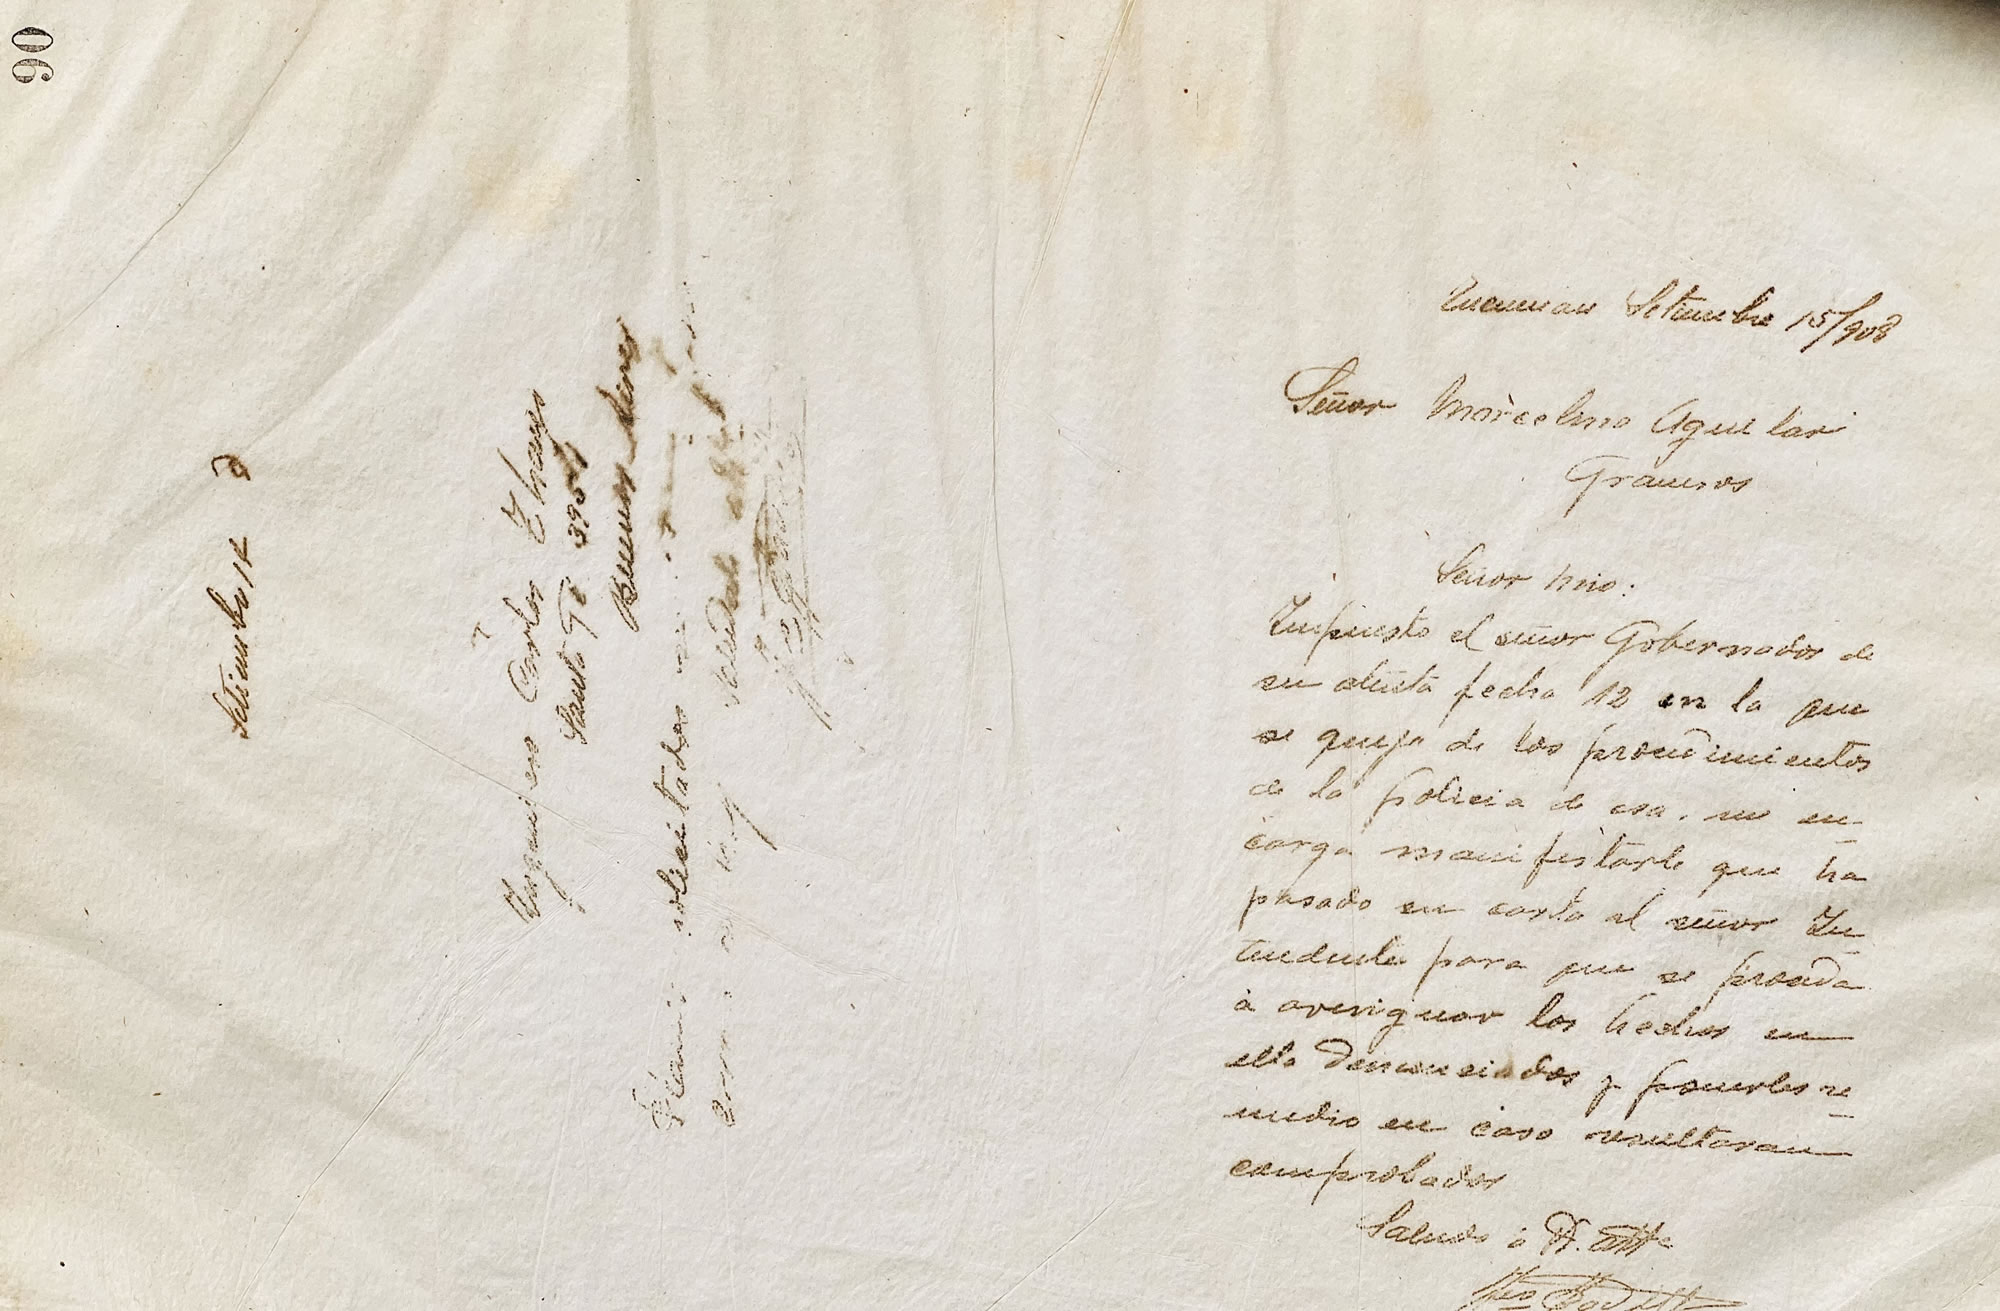 90
Setiembre 14
Ingeniero Carlos Thays
Santa Fé 3951
Buenos Aires
solicitados
Saludale
Tucuman Setiembre 15/908
Señor Marcelino Aguilar
Graneros
Señor mio:
Impuesto el señor Gobernador de
su atenta fecha 12 en la que
se queja de los procedimientos
de la policia de esa, me en
carga manifestarle que ha
pasado su carta al señor In
tendente para que se proceda
á averiguar los hechos en
ella denunciados y ponerles re
medio en caso resultaran
comprobados
Saludo á V. atte